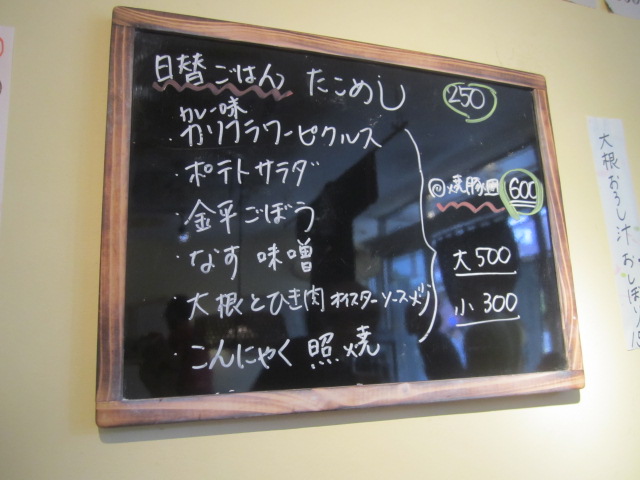 日替ごはん たこめし 250
カレー味
・カリフラワーピクルス
・ポテトサラダ
・金平ごぼう
・なす味噌
・大根とひき肉 オイスターソース炒
・こんにゃく 照焼
焼豚 600
大 500
小 300
大根おろし汁